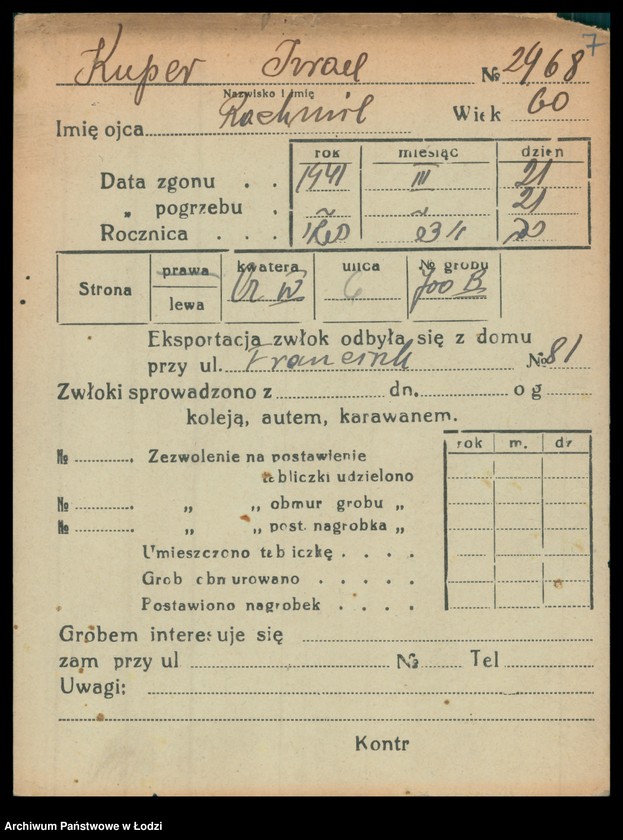 7
Kuper Izrael № 2968
Nazwisko i imię
Imię ojca Rachmil Wiek 60
rok miesiąc dzień
Data zgonu . . 1941 III 21
„ pogrzebu . 21
Rocznica . . .
Strona prawa kwatera ulica № grobu
lewa
Eksportacja zwłok odbyła się z domu
przy ul. № 81
Zwłoki sprowadzono z dn. o g
koleją, autem, karawanem.
rok m. dz
№ Zezwolenie na postawienie
tabliczki udzielono
№ „ „ obmur grobu „
№ „ „ post. nagrobka „
Umieszczono tabliczkę . . . .
Grób obmurowano . . . . .
Postawiono nagrobek . . . .
Grobem interesuje się
zam przy ul № Tel
Uwagi:
Kontr
Archiwum Państwowe w Łodzi